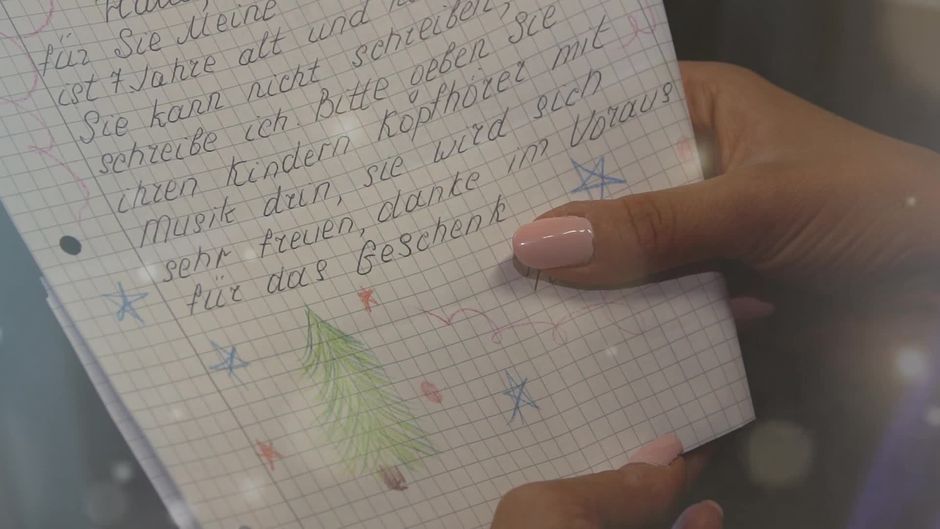 Hallo,
für Sie Meine
ist 7 Jahre alt und
Sie kann nicht schreiben,
schreibe ich. Bitte geben Sie
ihren kindern Kopfhörer mit
Musik drin, sie wird sich
sehr freuen, danke im Voraus
für das Geschenk